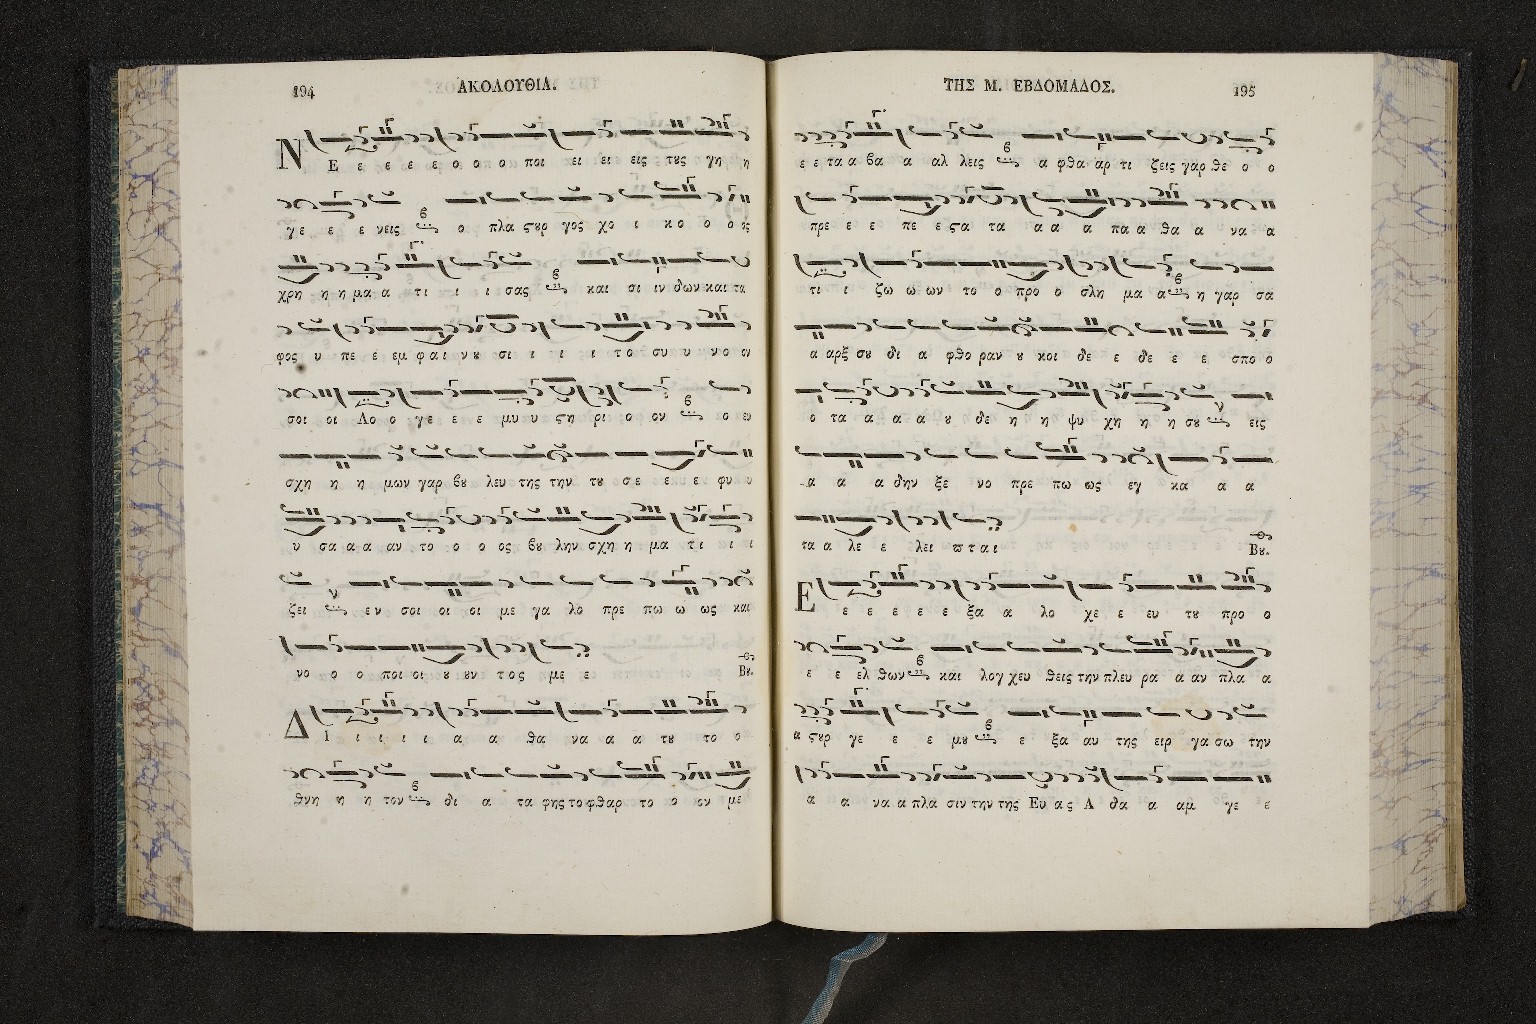 194 ΑΚΟΛΟΥΘΙΑ.
Ν Ε ε ε ε ε ο ο ο ποι ει ει εις τȣς γη η
γε ε ε νεις ο πλα ϛȣρ γος χο ι κο ο ο ος
χρη η η μα α τι ι ι ι σας και σι ιν δων και τα
φος υ πε ε εμ φαι νȣ σι ι ι ι το συ υ νο ον
σοι οι Λο ο γε ε ε ε μυ υ ϛη ρι ο ον ο ευ
σχη η η μων γαρ βȣ λευ της την τȣ σε ε ε ε φυ υ
υ σα α α αν το ο ο ο ος βȣ λην σχη η μα τι ι ι ι
ζει εν σοι οι οι με γα λο πρε πω ω ως και
νο ο ο ποι οι ȣ ȣν τος με ε Βȣ.
Δ Ι ι ι ι ι α α θα να α α τȣ το ο
θνη η η η τον δι α τα φης το φθαρ το ο ο ον με
ΤΗΣ Μ. ΕΒΔΟΜΑΔΟΣ. 195
ε ε τα α βα α αλ λεις α φθα αρ τι ζεις γαρ θε ο ο
πρε ε ε πε ε ϛα τα α α α πα α θα α να α
τι ι ζω ω ων το ο προ ο σλη μα α η γαρ σα
α αρξ σȣ δι α φθο ραν ȣ κοι δε ε δε ε ε σπο ο
ο τα α α α ȣ δε η η ψυ χη η η σȣ εις
α α α δην ξε νο πρε πω ως εγ κα α α
τα α λε ε λει πται Βȣ.
Ε ε ε ε ε ε ξα α λο χε ε ευ τȣ προ ο
ε ε ελ θων και λογ χευ θεις την πλευ ρα α αν πλα α
α ϛȣρ γε ε ε μȣ ε ξα αυ της ειρ γα σω την
α α να α πλα σιν την της Ευ ας Α δα α αμ γε ε